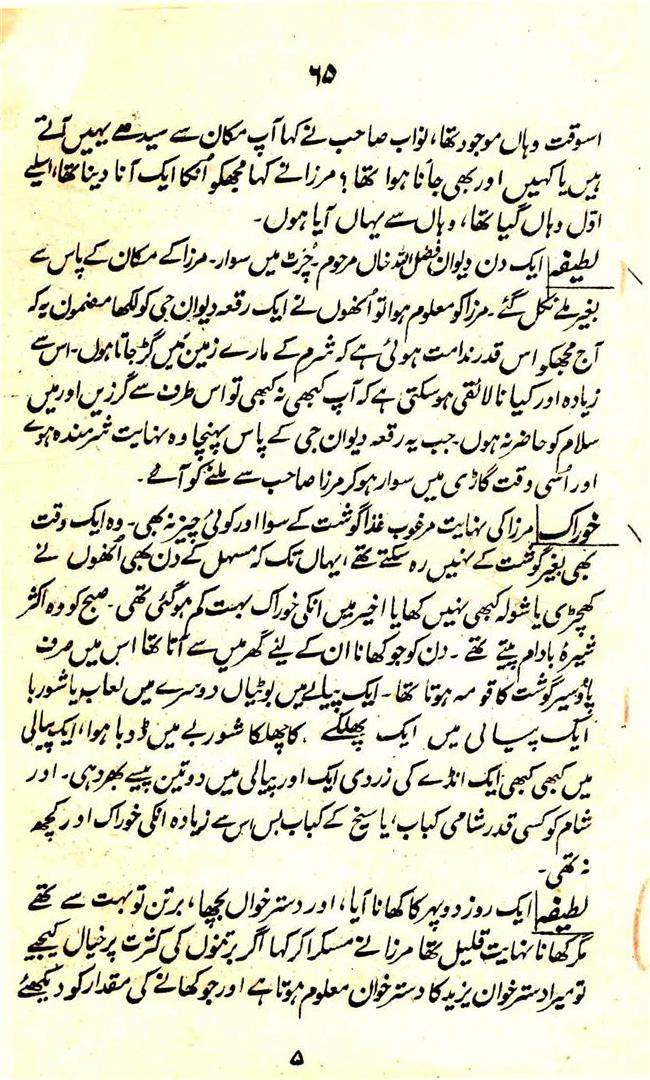 ۶۵
اسوقت وہاں موجود تھا، نواب صاحب نے کہا آپ مکان سے سیدھے یہیں آتے
ہیں یا کہیں اور بھی جانا ہوا تھا؟ مرزا نے کہا مجھکو اُنکا ایک آنا دینا تھا، اسلیے
اوّل وہاں گیا تھا، وہاں سے یہاں آیا ہوں۔
لطیفہ ایک دن دیوان فضل اللہ خاں مرحوم۔ چُرٹ میں سوار۔ مرزا کے مکان کے پاس سے
بغیر ملے نکل گئے۔ مرزا کو معلوم ہوا تو اُنھوں نے ایک رقعہ دیوان جی کو لکھا مضمون یہ کہ
آج مجھکو اس قدر ندامت ہوئی ہے کہ شرم کے مارے زمین میں گڑ جاتا ہوں۔ اس سے
زیادہ اور کیا نالائقی ہو سکتی ہے کہ آپ کبھی نہ کبھی تو اس طرف سے گزریں اور میں
سلام کو حاضر نہ ہوں۔ جب یہ رقعہ دیوان جی کے پاس پہنچا وہ نہایت شرمندہ ہوے
اور اُسی وقت گاڑی میں سوار ہو کر مرزا صاحب سے ملنے کو آئے۔
خوراک مرزا کی نہایت مرغوب غذا گوشت کے سوا اور کوئی چیز نہ بھی۔ وہ ایک وقت
بھی بغیر گوشت کے نہیں رہ سکتے تھے، یہاں تک کہ مسہل کے دن بھی اُنھوں نے
کھچڑی یا شولہ کبھی نہیں کھایا اخیر میں انکی خوراک بہت کم ہو گئی تھی۔ صبح کو وہ اکثر
شیرۂ بادام پیتے تھے۔ دن کو جو کھانا ان کے لیئے گھر میں سے آتا تھا اس میں صرف
پاؤ سیر گوشت کا قومہ ہوتا تھا۔ ایک پیالے میں بوٹیاں دوسرے میں لعاب یا شوربا
ایک پیالی میں ایک پھلکے کا چھلکا شوربے میں ڈوبا ہوا، ایک پیالی
میں کبھی کبھی ایک انڈے کی زردی ایک اور پیالی میں دو تین پیسے بھر دہی۔ اور
شام کو کسی قدر شامی کباب، یا سیخ کے کباب بس اس سے زیادہ انکی خوراک اور کچھ
نہ تھی۔
لطیفہ ایک روز دوپہر کا کھانا آیا، اور دستر خوان بچھا، برتن تو بہت سے تھے
مگر کھانا نہایت قلیل تھا مرزا نے مسکرا کر کہا اگر برتنوں کی کثرت پر خیال کیجیے
تو میرا دستر خوان یزید کا دستر خوان معلوم ہوتا ہے اور جو کھانے کی مقدار کو دیکھئے
۵